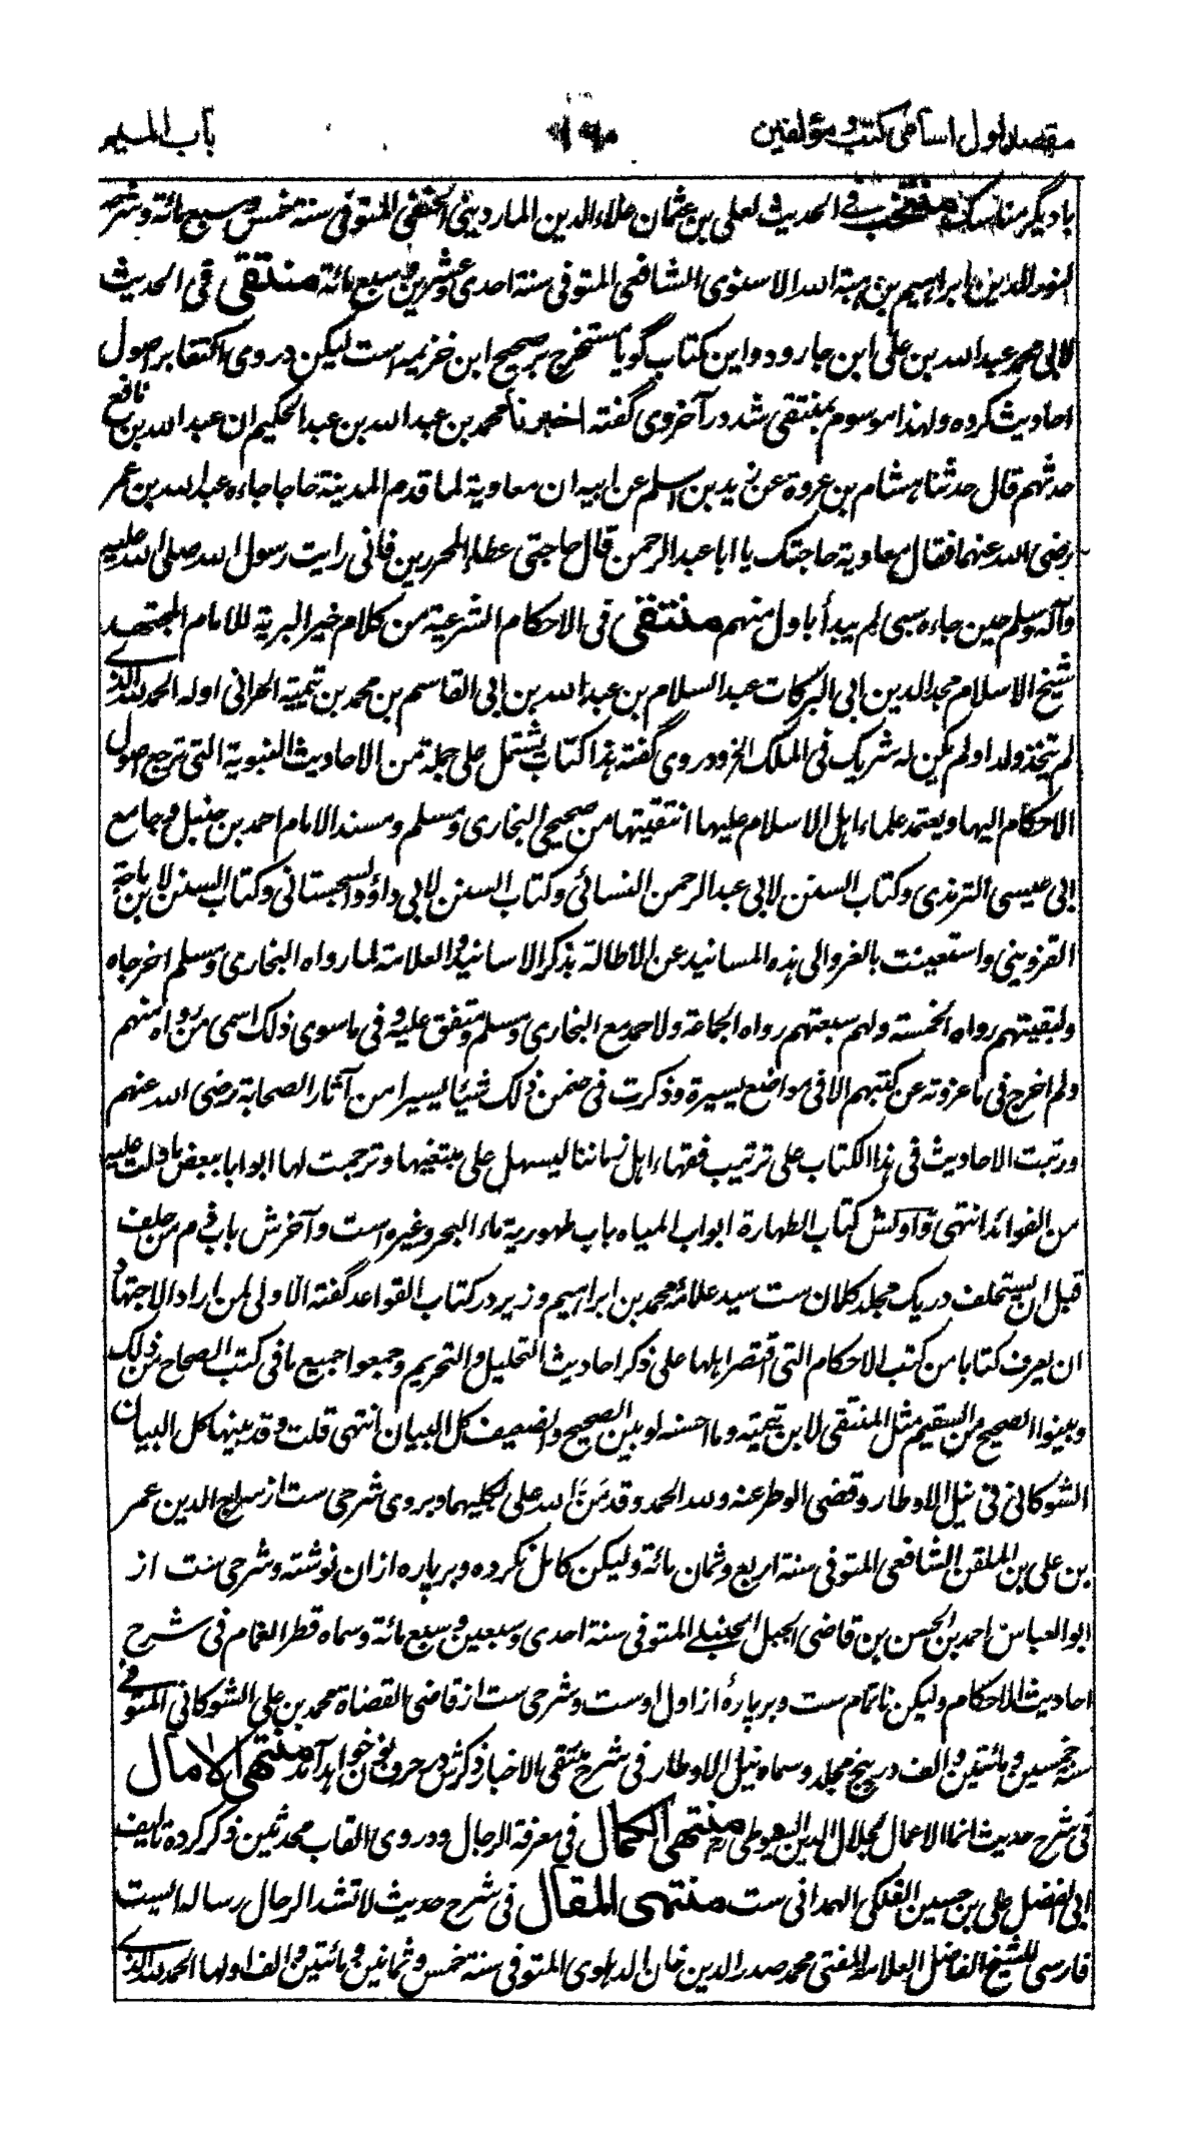 مقصد اول اسامی کتب و مؤلفین ۱۹۰ باب المیم
با دیگر مناسک منتخب فی الحدیث لعلی بن عثمان علاء الدین الماردینی الحنفی المتوفی سنة خمس و سبع مائة وشرحه
لنور الدین ابراهیم بن هبة الله الاسنوی الشافعی المتوفی سنة احدی و عشرین و سبع مائة منتقی فی الحدیث
لابی محمد عبد الله بن علی ابن جارود و این کتاب گویا مستخرج بر صحیح ابن خزیمه است لیکن در وی اکتفا بر اصول
احادیث کرده و لهذا موسوم بمنتقی شد در آخر وی گفته اخبرنا محمد بن عبد الله بن عبد الحکیم ان عبد الله بن نافع
حدثهم قال حدثنا هشام بن عروة عن زید بن اسلم عن ابیه ان معاویة لما قدم المدینة حاجا جاءه عبد الله بن عمر
رضی الله عنهما فقال معاویة حاجتک یا ابا عبد الرحمن قال حاجتی عطاء المحررین فانی رایت رسول الله صلی الله علیه
وآله وسلم حین جاءه سبی لم یبدأ باول منهم منتقی فی الاحکام الشرعیة من کلام خیر البریة للامام المجتهد
شیخ الاسلام مجد الدین ابی البرکات عبد السلام بن عبد الله بن ابی القاسم بن محمد بن تیمیة الحرانی اوله الحمد لله الذی
لم یتخذ ولدا ولم یکن له شریک فی الملک الخ و در وی گفته هذا کتاب یشتمل علی جملة من الاحادیث النبویة التی ترجع اصول
الاحکام الیها ویعتمد علماء اهل الاسلام علیها انتقیتها من صحیحی البخاری ومسلم ومسند الامام احمد بن حنبل وجامع
ابی عیسی الترمذی وکتاب السنن لابی عبد الرحمن النسائی وکتاب السنن لابی داؤد السجستانی وکتاب السنن لابن ماجة
القزوینی واستعینت بالعزو الی هذه المسانید عن الاطالة بذکر الاسانید والعلامة لما رواه البخاری ومسلم اخرجاه
ولبقیتهم رواه الخمسة ولهم سبعتهم رواه الجماعة ولاحمد مع البخاری ومسلم متفق علیه وفی ما سوی ذلک اسمی من رواه منهم
ولم اخرج فی ما عزوته عن کتبهم الا فی مواضع یسیرة وذکرت فی ضمن ذلک شیئا یسیرا من آثار الصحابة رضی الله عنهم
ورتبت الاحادیث فی هذا الکتاب علی ترتیب فقهاء اهل زماننا لیسهل علی مبتغیها وترجمت لها ابوابا ببعض ما دلت علیه
من الفوائد انتهی و اولش کتاب الطهارة ابواب المیاه باب طهوریة ماء البحر وغیره است و آخرش باب فی ذم من حلف
قبل ان یستحلف در یک مجلد کلان ست سید علامه محمد بن ابراهیم وزیر در کتاب القواعد گفته الاولی لمن اراد الاجتهاد
ان یعرف کتابا من کتب الاحکام التی اقتصر اهلها علی ذکر احادیث التحلیل والتحریم وجمعوا جمیع ما فی کتب الصحاح من ذلک
وبینوا الصحیح من السقیم مثل المنتقی لابن تیمیة وما احسنه لو بین الصحیح والضعیف کل البیان انتهی قلت وقد بینها کل البیان
الشوکانی فی نیل الاوطار وقضی الوطر عنه ولله الحمد وقد منّ الله علی بکلیهما و بروی شرحی ست از سراج الدین عمر
بن علی بن الملقن الشافعی المتوفی سنة اربع و ثمان مائة و لیکن کامل نکرده و بر پاره از ان نوشته و شرحی ست از
ابو العباس احمد بن الحسن بن قاضی الجبل الحنبلی المتوفی سنة احدی و سبعین و سبع مائة و سماه قطر الغمام فی شرح
احادیث الاحکام و لیکن ناتمام ست و بر پارهٔ از اول اوست و شرحی ست از قاضی القضاة محمد بن علی الشوکانی المتوفی
سنة خمسین و مائتین و الف در پنج مجلد و سماه نیل الاوطار فی شرح منتقی الاخبار ذکرش در حرف نون خواهد آمد منتهی الامال
فی شرح حدیث انما الاعمال لجلال الدین السیوطی رح منتهی الکمال فی معرفة الرجال و در وی القاب محدثین ذکر کرده تالیف
ابی الفضل علی بن حسین الفلکی الهمدانی ست منتهی المقال فی شرح حدیث لا تشد الرحال رساله ایست
فارسی للشیخ الفاضل العلامة المفتی محمد صدر الدین خان الدهلوی المتوفی سنة خمس و ثمانین و مائتین و الف اولها الحمد لله الذی